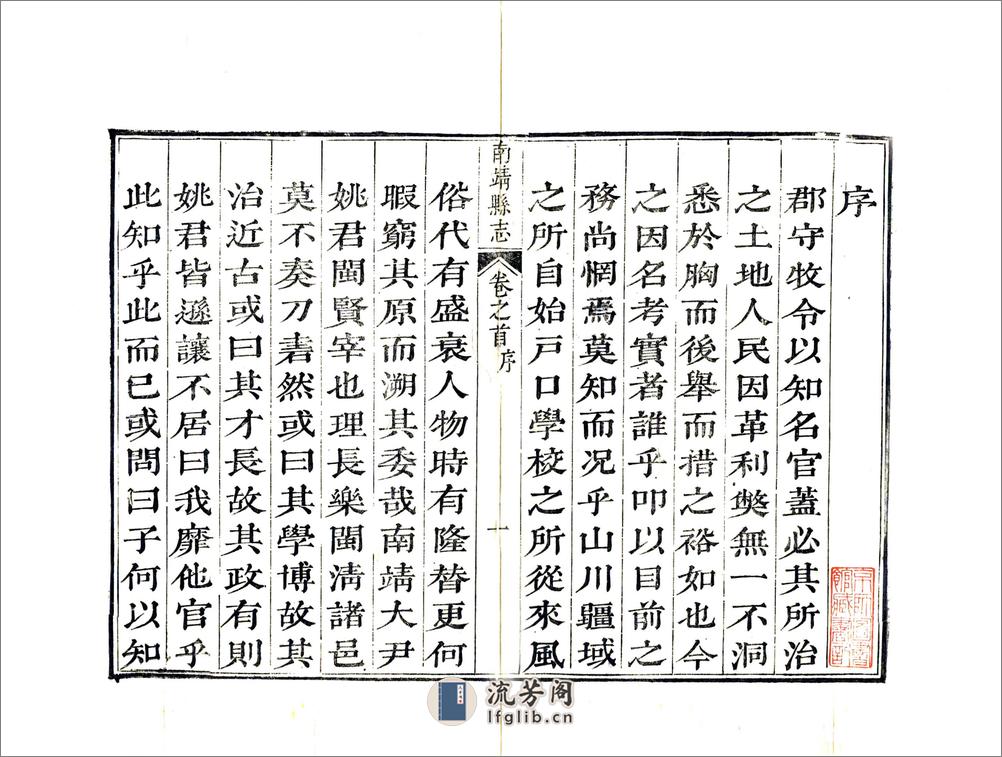 序
郡守牧令以知名官蓋必其所治
之土地人民因革利獘無一不洞
悉於胸而後舉而措之裕如也今
之因名考實者誰乎叩以目前之
務尚惘焉莫知而況乎山川疆域
之所自始戸口學校之所從來風
南靖縣志
卷之首 序
一
俗代有盛衰人物時有隆替更何
暇窮其原而溯其委哉南靖大尹
姚君閩賢宰也理長樂閩清諸邑
莫不奏刀砉然或曰其學博故其
治近古或曰其才長故其政有則
姚君皆遜讓不居曰我靡他官乎
此知乎此而已或問曰子何以知
流芳阁
lfglib.cn